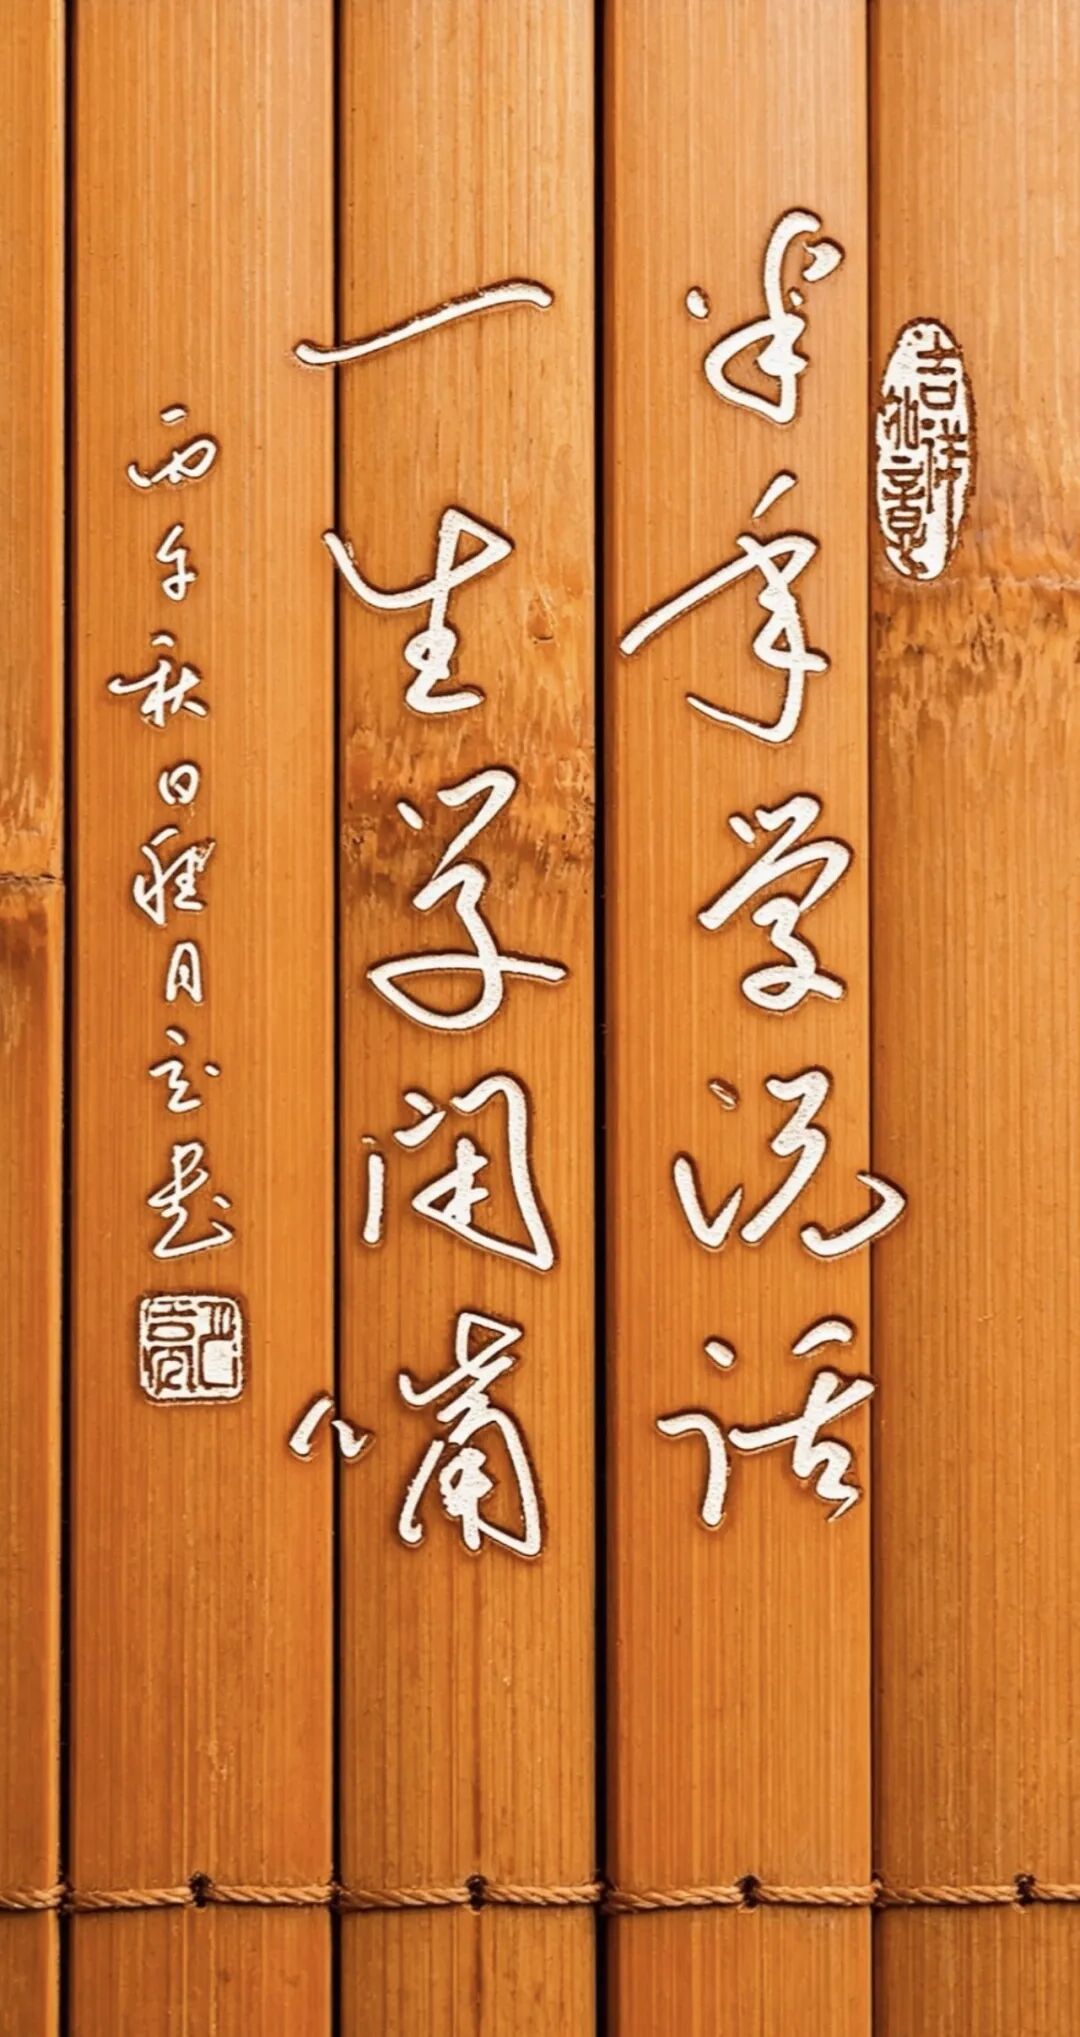 吉祥如意
半年学说话
一生学闭嘴
丙午秋日